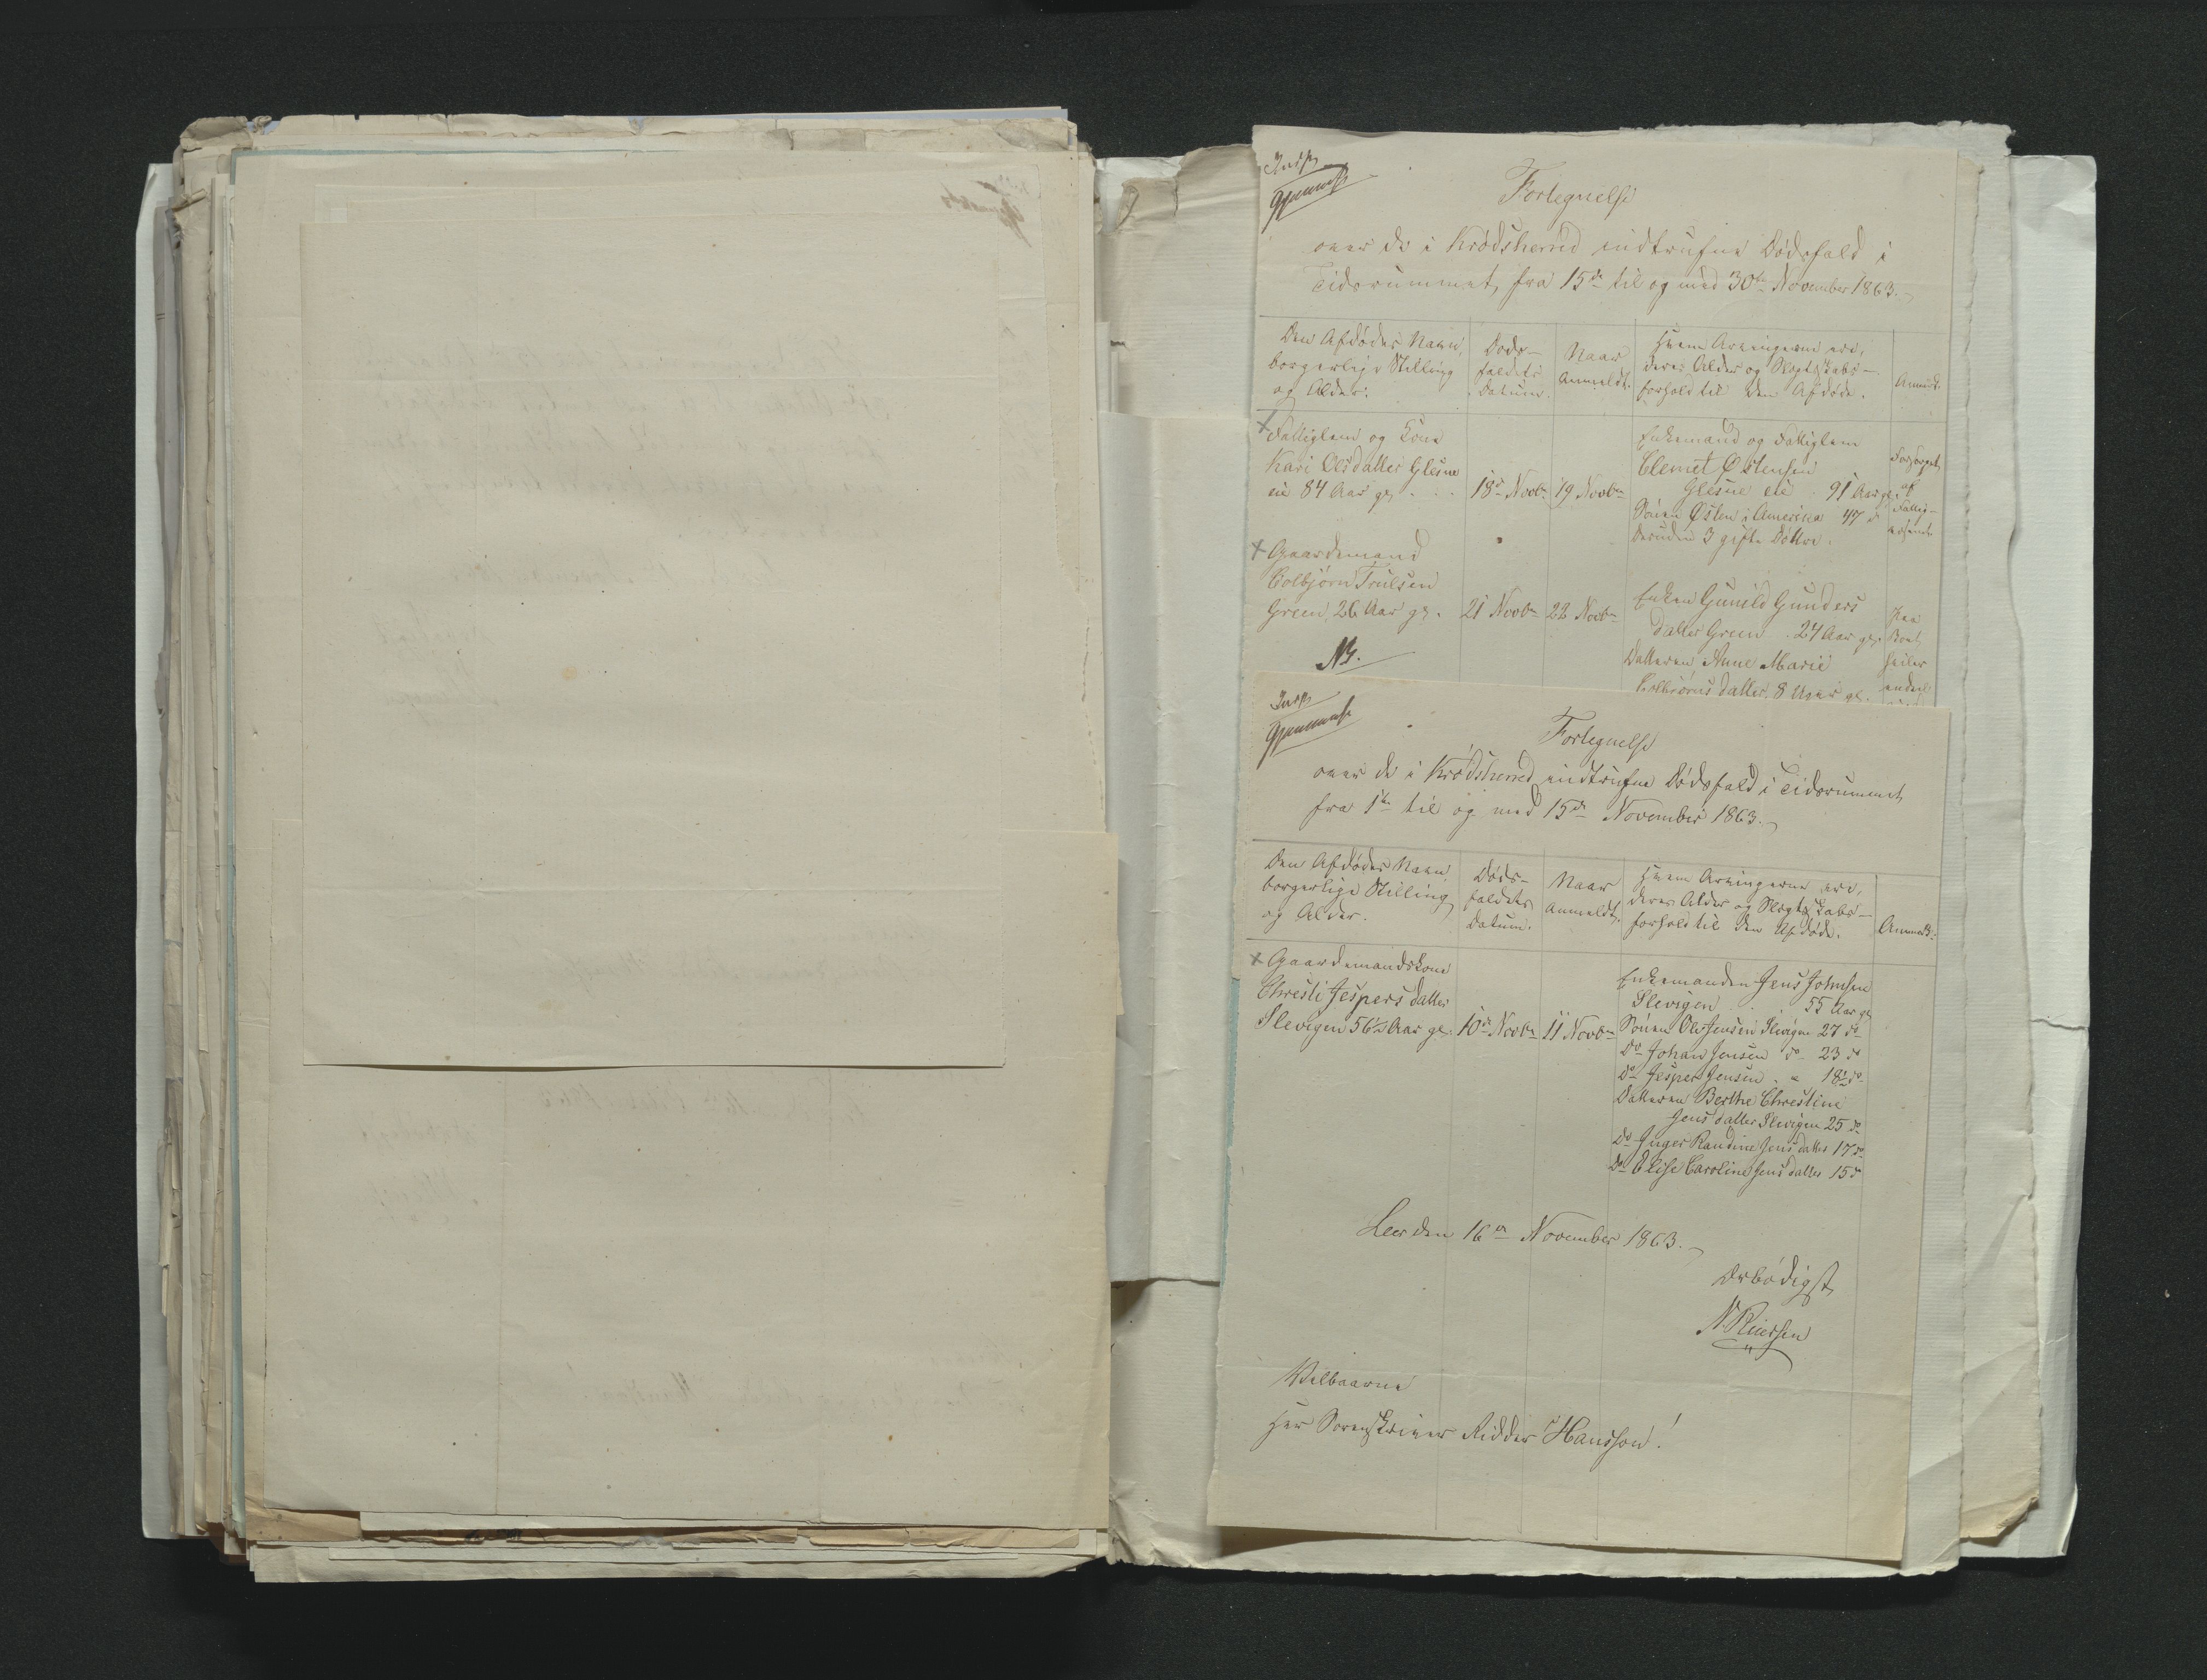 Fortegnelse
over de i Krødsherred indtrufne Dødsfald i
Tidsrummet fra 15de til og med 30te November 1863.
Den Afdødes Navn,
borgerlige Stilling
og Alder.
Døds-
faldets
Datum.
Naar
Anmeldt.
Hvem Arvingerne ere,
deres Alder og Slægtskabs-
forhold til den Afdøde.
Anmærk.
Fattiglem og Kone
Kari Olsdatter Glesne
eie 84 Aar gl.
18de Novbr
19 Novbr
Enkemand og Fattiglem
Clemet Østensen
Glesne eie . 91 Aar gl.
Sønen Østen i Amerika 47 do
Desuden 3 gifte Døttre.
Forsørget
af
Fattig-
væsenet
Gaardmand
Colbjørn Trulsen
Green, 26 Aar gl.
21 Novbr
22 Novbr
Enken Gunild Gunders
datter Green . 24 Aar gl.
Datteren Anne Marie
Colbjørnsdatter 8 Uger gl.
NB.
Fortegnelse
over de i Krødsherred indtrufne Dødsfald i Tidsrummet
fra 1te til og med 15de November 1863.
Den Afdødes Navn
borgerlige Stilling
og Alder.
Døds-
faldets
Datum.
Naar
Anmeldt.
Hvem Arvingerne ere,
deres Alder og Slægtskabs-
forhold til den Afdøde.
Anmærk:
Gaardmandskone
Chresti Jespersdatter
Slevigen 56½ Aar gl.
10de Novbr
11 Novbr
Enkemanden Jens Johnsen
Slevigen . 55 Aar gl
Sønen Ole Jensen Slevigen 27 do
Do Johan Jensen do 23 do
Do Jesper Jensen " 18½ do
Datteren Berthe Christine
Jensdatter Slevigen 25 do
Do Inger Randine Jensdatter 17 do
Do Elise Caroline Jensdatter 15 do
Leer den 16de November 1863.
Ærbødigst
N. Ruersen
Velbaarne
Herr Sorenskriver Ridder Hansson!